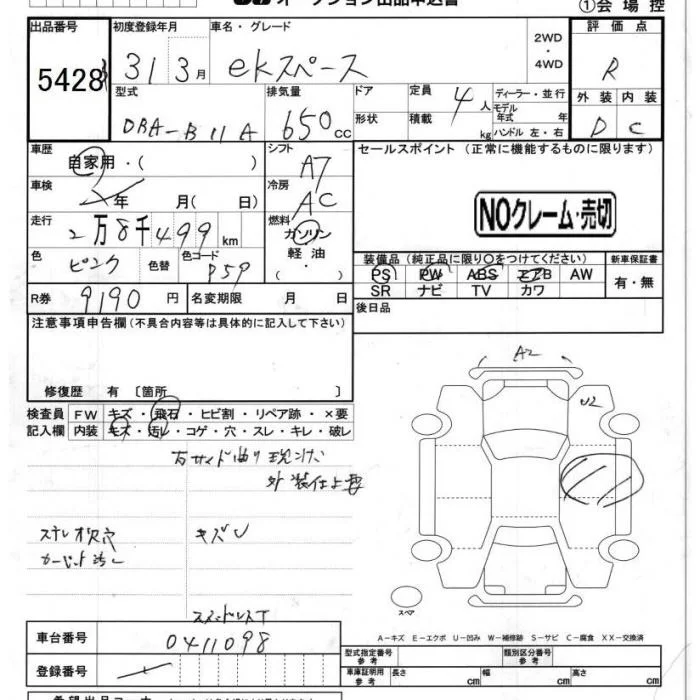 オークション出品申込書
①会場控
出品番号 初度登録年月 車名・グレード 評価点
5428 31 3月 ekスペース 2WD・4WD R
型式 排気量 ドア 定員 ディーラー・並行 外装 内装
DBA-B11A 650cc 形状 4人 モデル年式 年 D C
積載 kg ハンドル 左・右
車歴 シフト セールスポイント (正常に機能するものに限ります)
自家用・( ) A7
車検 冷房
年 月( 日) AC NOクレーム・売切
走行 燃料
2万8千499km ガソリン
色 色替 色コード 軽油 装備品(純正品に限り○をつけてください) 新車保証書
ピンク P59 ・( ) PS PW ABS エアB AW 有・無
SR ナビ TV カワ
R券 9190円 名変期限 月 日 後日品
注意事項申告欄(不具合内容等は具体的に記入して下さい)
修復歴 有 〔箇所 〕
A2
U2
検査員 FW キズ・飛石・ヒビ割・リペア跡・×要
記入欄 内装 キズ・汚レ・コゲ・穴・スレ・キレ・破レ
キズU
スペア
車台番号 0411098
A−キズ E−エクボ U−凹み W−補修跡 S−サビ C−腐食 XX−交換済
登録番号
型式指定番号 参考 類別区分番号 参考
車庫証明用 参考 長さ cm 幅 cm 高さ cm